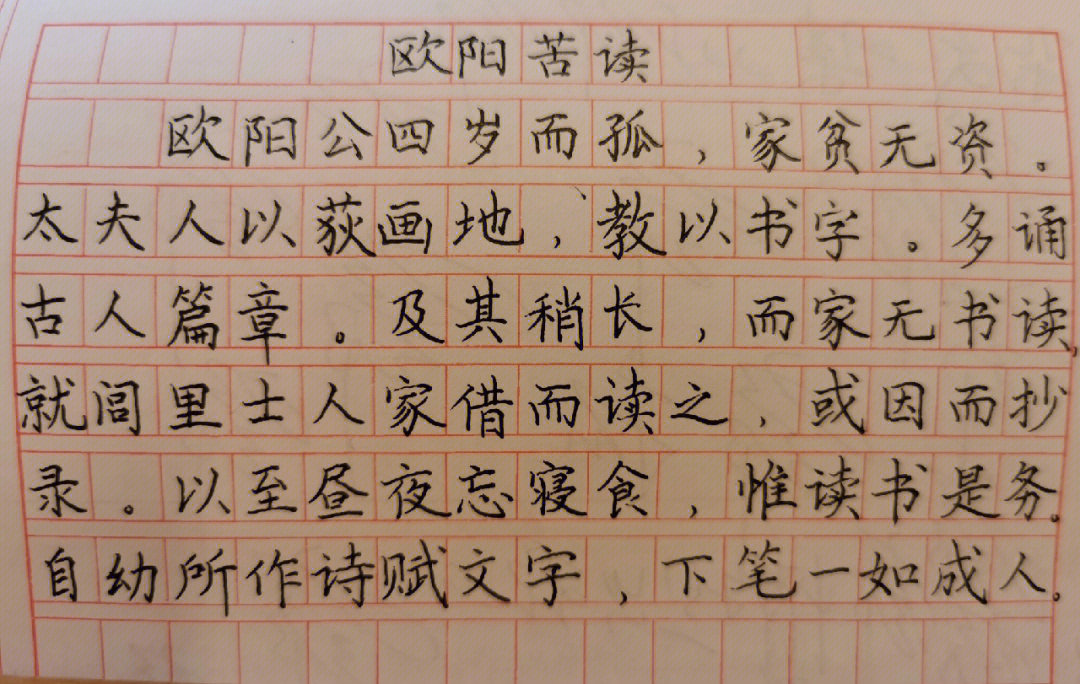 欧阳苦读
欧阳公四岁而孤，家贫无资。
太夫人以荻画地，教以书字。多诵
古人篇章。及其稍长，而家无书读，
就闾里士人家借而读之，或因而抄
录。以至昼夜忘寝食，惟读书是务。
自幼所作诗赋文字，下笔一如成人。